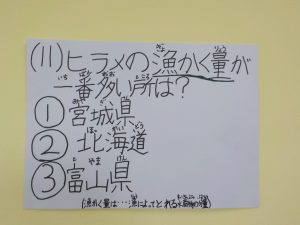 (11)ヒラメの漁かく量が
一番多い所は?
①宮城県
②北海道
③富山県
(漁かく量は…漁によってとれる水産物の量)